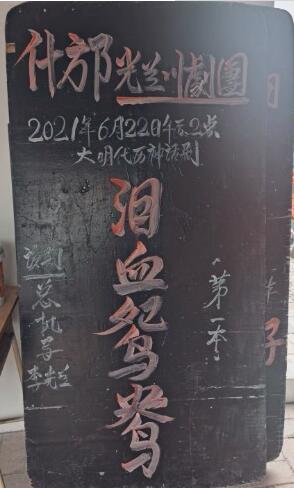 什邡光兰川劇團
2021年6月22日午后2点
大明代历神话剧
泪血鸳鸯
（第一本）
该剧总执导
李光兰
日
子